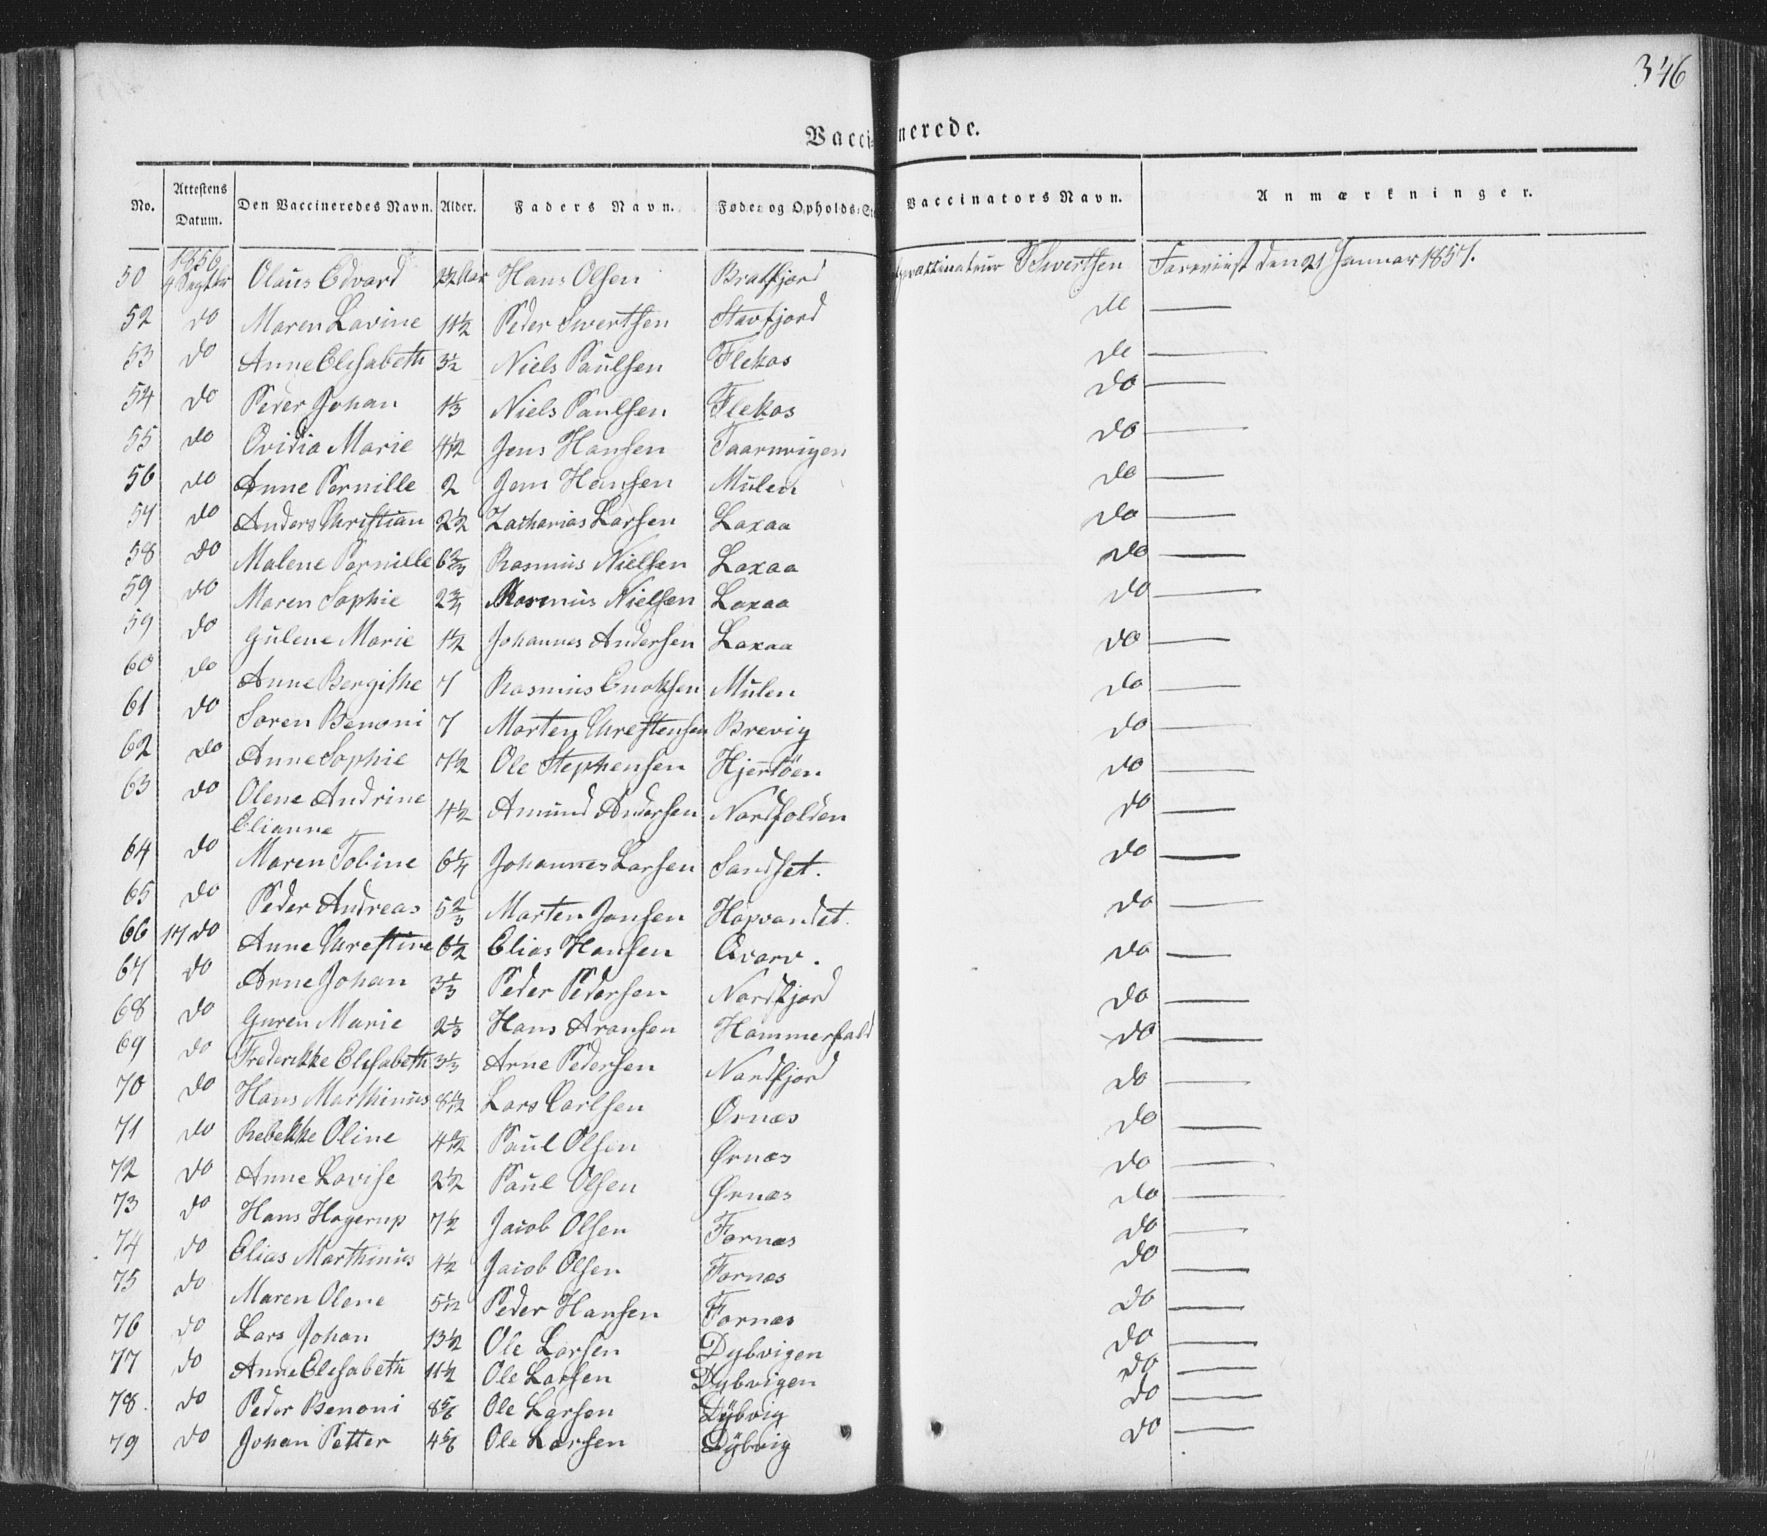 346
Vaccinerede.
No. Attestens Datum. Den Vaccineredes Navn. Alder. Faders Navn. Føde- og Opholds-St Vaccinators Navn. Anmærkninger.
1856
50 4 Septbr Olaus Edvard 2½ Aar Hans Olsen Bratfjord Sivertsen Foreviist den 21 Januar 1857.
52 do Maren Lavine 11½ Peder Sivertsen Stavfjord do
53 do Anne Elisabeth 3½ Niels Paulsen Flekos do
54 do Peder Johan 1⅓ Niels Paulsen Flekos do
55 do Ovidia Marie 4½ Jens Hansen Taarnvigen do
56 do Anne Pernille 2 Jens Hansen Mulen do
57 do Anders Christian 2½ Zacharias Larsen Laxaa do
58 do Malene Pernille 6⅔ Rasmus Nielsen Laxaa do
59 do Maren Sophie 2¾ Rasmus Nielsen Laxaa do
59 do Gulene Marie 1½ Johannes Andersen Laxaa do
60 do Anne Bergithe 7 Rasmus Enoksen Mulen do
61 do Soren Benoni 7 Morten Chrestensen Brevig do
62 do Anne Sophie 7½ Ole Stephensen Hjertøen do
63 do Olene Andrine 4½ Amund Andersen Nordfolden do
Elianne
64 do Maren Tobine 6¼ Johannes Larsen Sandset. do
65 do Peder Andreas 5⅔ Morten Jonsen Hopvandet. do
66 17 do Anne Chrestine 6½ Elias Hansen Qvarv. do
67 do Arne Johan 3⅓ Peder Pedersen Nordfjord do
68 do Guren Marie 2⅓ Hans Aronsen Hammerfald do
69 do Frederikke Elisabeth 3⅓ Arne Pedersen Nordfjord do
70 do Hans Marthinus 8½ Lars Carlsen Ørnæs do
71 do Rebekke Oline Paul Olsen Ørnæs do
72 do Anne Lovise 2½ Paul Olsen Ørnæs do
73 do Hans Hagerup 7½ Jacob Olsen Fornæs do
74 do Elias Marthinus 4½ Jacob Olsen Fornæs do
75 do Maren Olene Peder Hansen Fornæs do
76 do Lars Johan 13½ Ole Larsen Dybvigen do
77 do Anne Elesabeth 11½ Ole Larsen Dybvigen do
78 do Peder Benoni 8⅚ Ole Larsen Dybvig do
79 do Johan Petter 4⅚ Ole Larsen Dybvig do